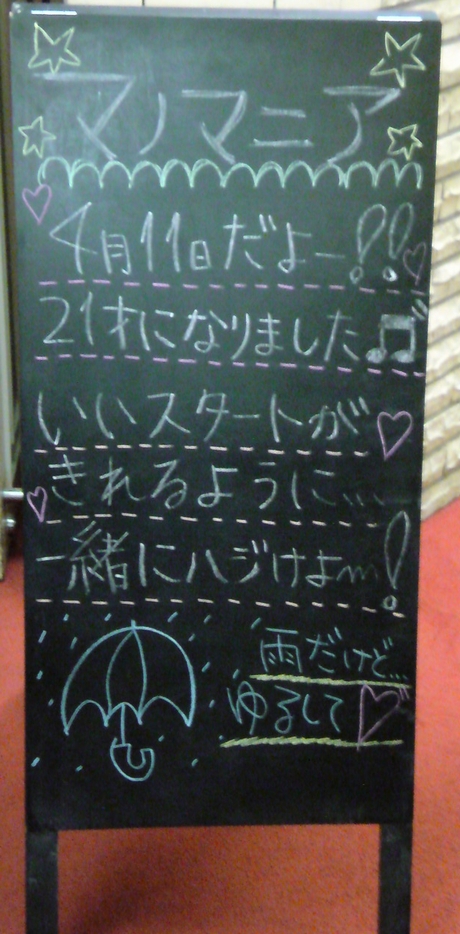 マノマニア
4月11日だよー!!
21才になりました♫
いいスタートが♡
きれるように...
一緒にハジけよ〜!
雨だけど...
ゆるして♡